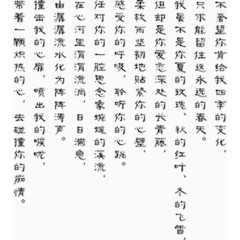 不奢望你肯给我四季的变化，
只求能留住这永远的春天。
我虽不是你夏的玫瑰、秋的红叶、冬的飞雪，
但却是你爱恋的长青藤
柔软而坚韧地贴紧你的心壁
感受你的呼吸、聆听你的心跳。
任对你的一腔思念象蜿蜒的溪流，
在心河里涓涓流淌，日日湍息，
由潺潺流水化为阵阵涛声。
撞击我的心扉，喷出我的喉咙，
带着一颗炽热的心，去碰撞你的痴情。